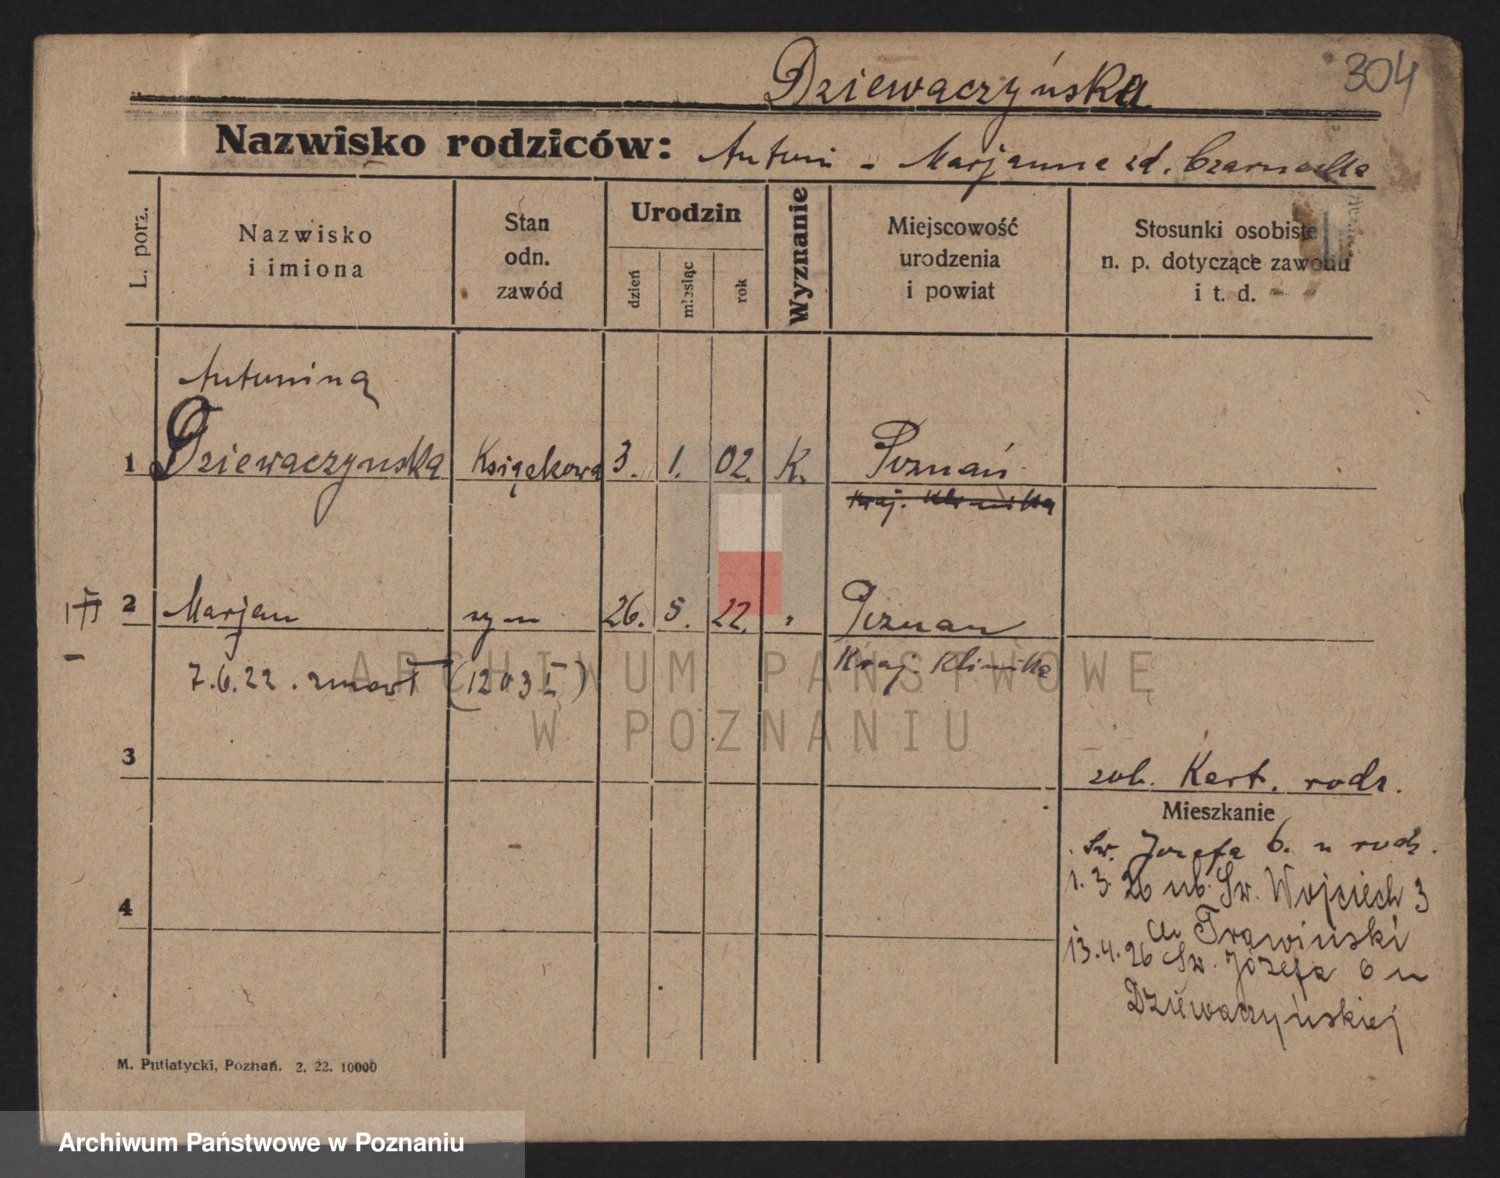 304
Dziewaczyńska
Nazwisko rodziców: Antoni - Marjanna zd. Czarnecka
L. porz.
Nazwisko i imiona
Stan odn. zawód
Urodzin
dzień
miesiąc
rok
Wyznanie
Miejscowość urodzenia i powiat
Stosunki osobiste n. p. dotyczące zawodu i t. d.
Antonina
1 Dziewaczynska Książkowa 3. 1. 02. K. Poznań
Kraj. Klinika
III 2 Marjan syn 26. 5. 22. " Poznan
Kraj. Klinika
7.6.22. zmarł (1203 I)
3
zob. Kart. rodz.
Mieszkanie
Sw. Jozefa 6. u rodz.
1.3.26 ub. Sw. Wojciech 3
4
Trawiński
13.4.26 Sw. Józefa 6 u
Dziewaczyńskiej
M. Putiatycki, Poznań. 2. 22. 10000
ARCHIWUM PAŃSTWOWE
W POZNANIU
Archiwum Państwowe w Poznaniu